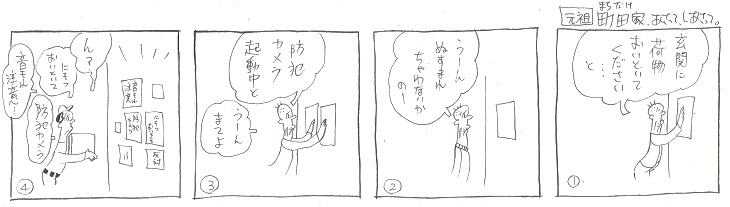 元祖
まちだけ
町田家、あさって、しあさって。
玄関に
荷物
おいといて
ください
と…
①
うーん
ぬすまれ
ちゃわないか
のー
②
防犯
カメラ
起動中と
うーん
まてよ
③
ん？
にもつ
おいといて
音もれ
注意ん…
防犯カメラ
④